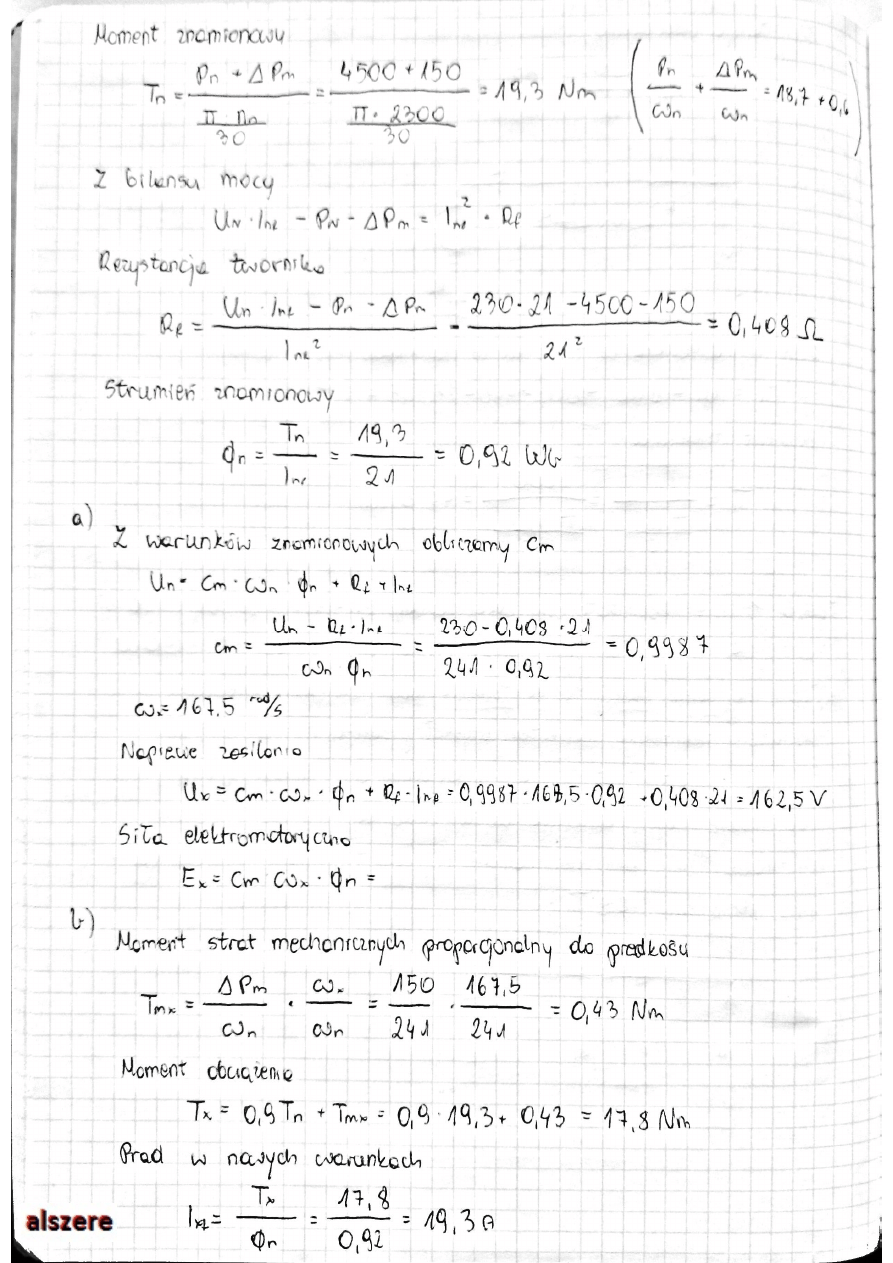 Moment znamionowy
Tn = (Pn + ΔPm) / (π · nn / 30) = (4500 + 150) / (π · 2300 / 30) = 19,3 Nm (Pn/ωn + ΔPm/ωn = 18,7 + 0,6)
Z bilansu mocy
UN · Int - PN - ΔPm = Int² · Rt
Rezystancja twornika
Rt = (Un · Int - Pn - ΔPm) / Int² = (230 · 21 - 4500 - 150) / 21² = 0,408 Ω
Strumień znamionowy
ϕn = Tn / Int = 19,3 / 21 = 0,92 Wb
a)
Z warunków znamionowych obliczamy cm
Un = cm · ωn · ϕn + Rt · Int
cm = (Un - Rt · Int) / (ωn ϕn) = (230 - 0,408 · 21) / (241 · 0,92) = 0,9987
ωx = 167,5 rad/s
Napięcie zasilania
Ux = cm · ωx · ϕn + Rt · Int = 0,9987 · 167,5 · 0,92 + 0,408 · 21 = 162,5 V
Siła elektromotoryczna
Ex = cm ωx · ϕn =
b)
Moment strat mechanicznych proporcjonalny do prędkości
Tmx = ΔPm / ωn · ωx / ωn = 150 / 241 · 167,5 / 241 = 0,43 Nm
Moment obciążenia
Tx = 0,9 Tn + Tmx = 0,9 · 19,3 + 0,43 = 17,8 Nm
Prąd w nowych warunkach
Ixt = Tx / ϕn = 17,8 / 0,92 = 19,3 A
alszere